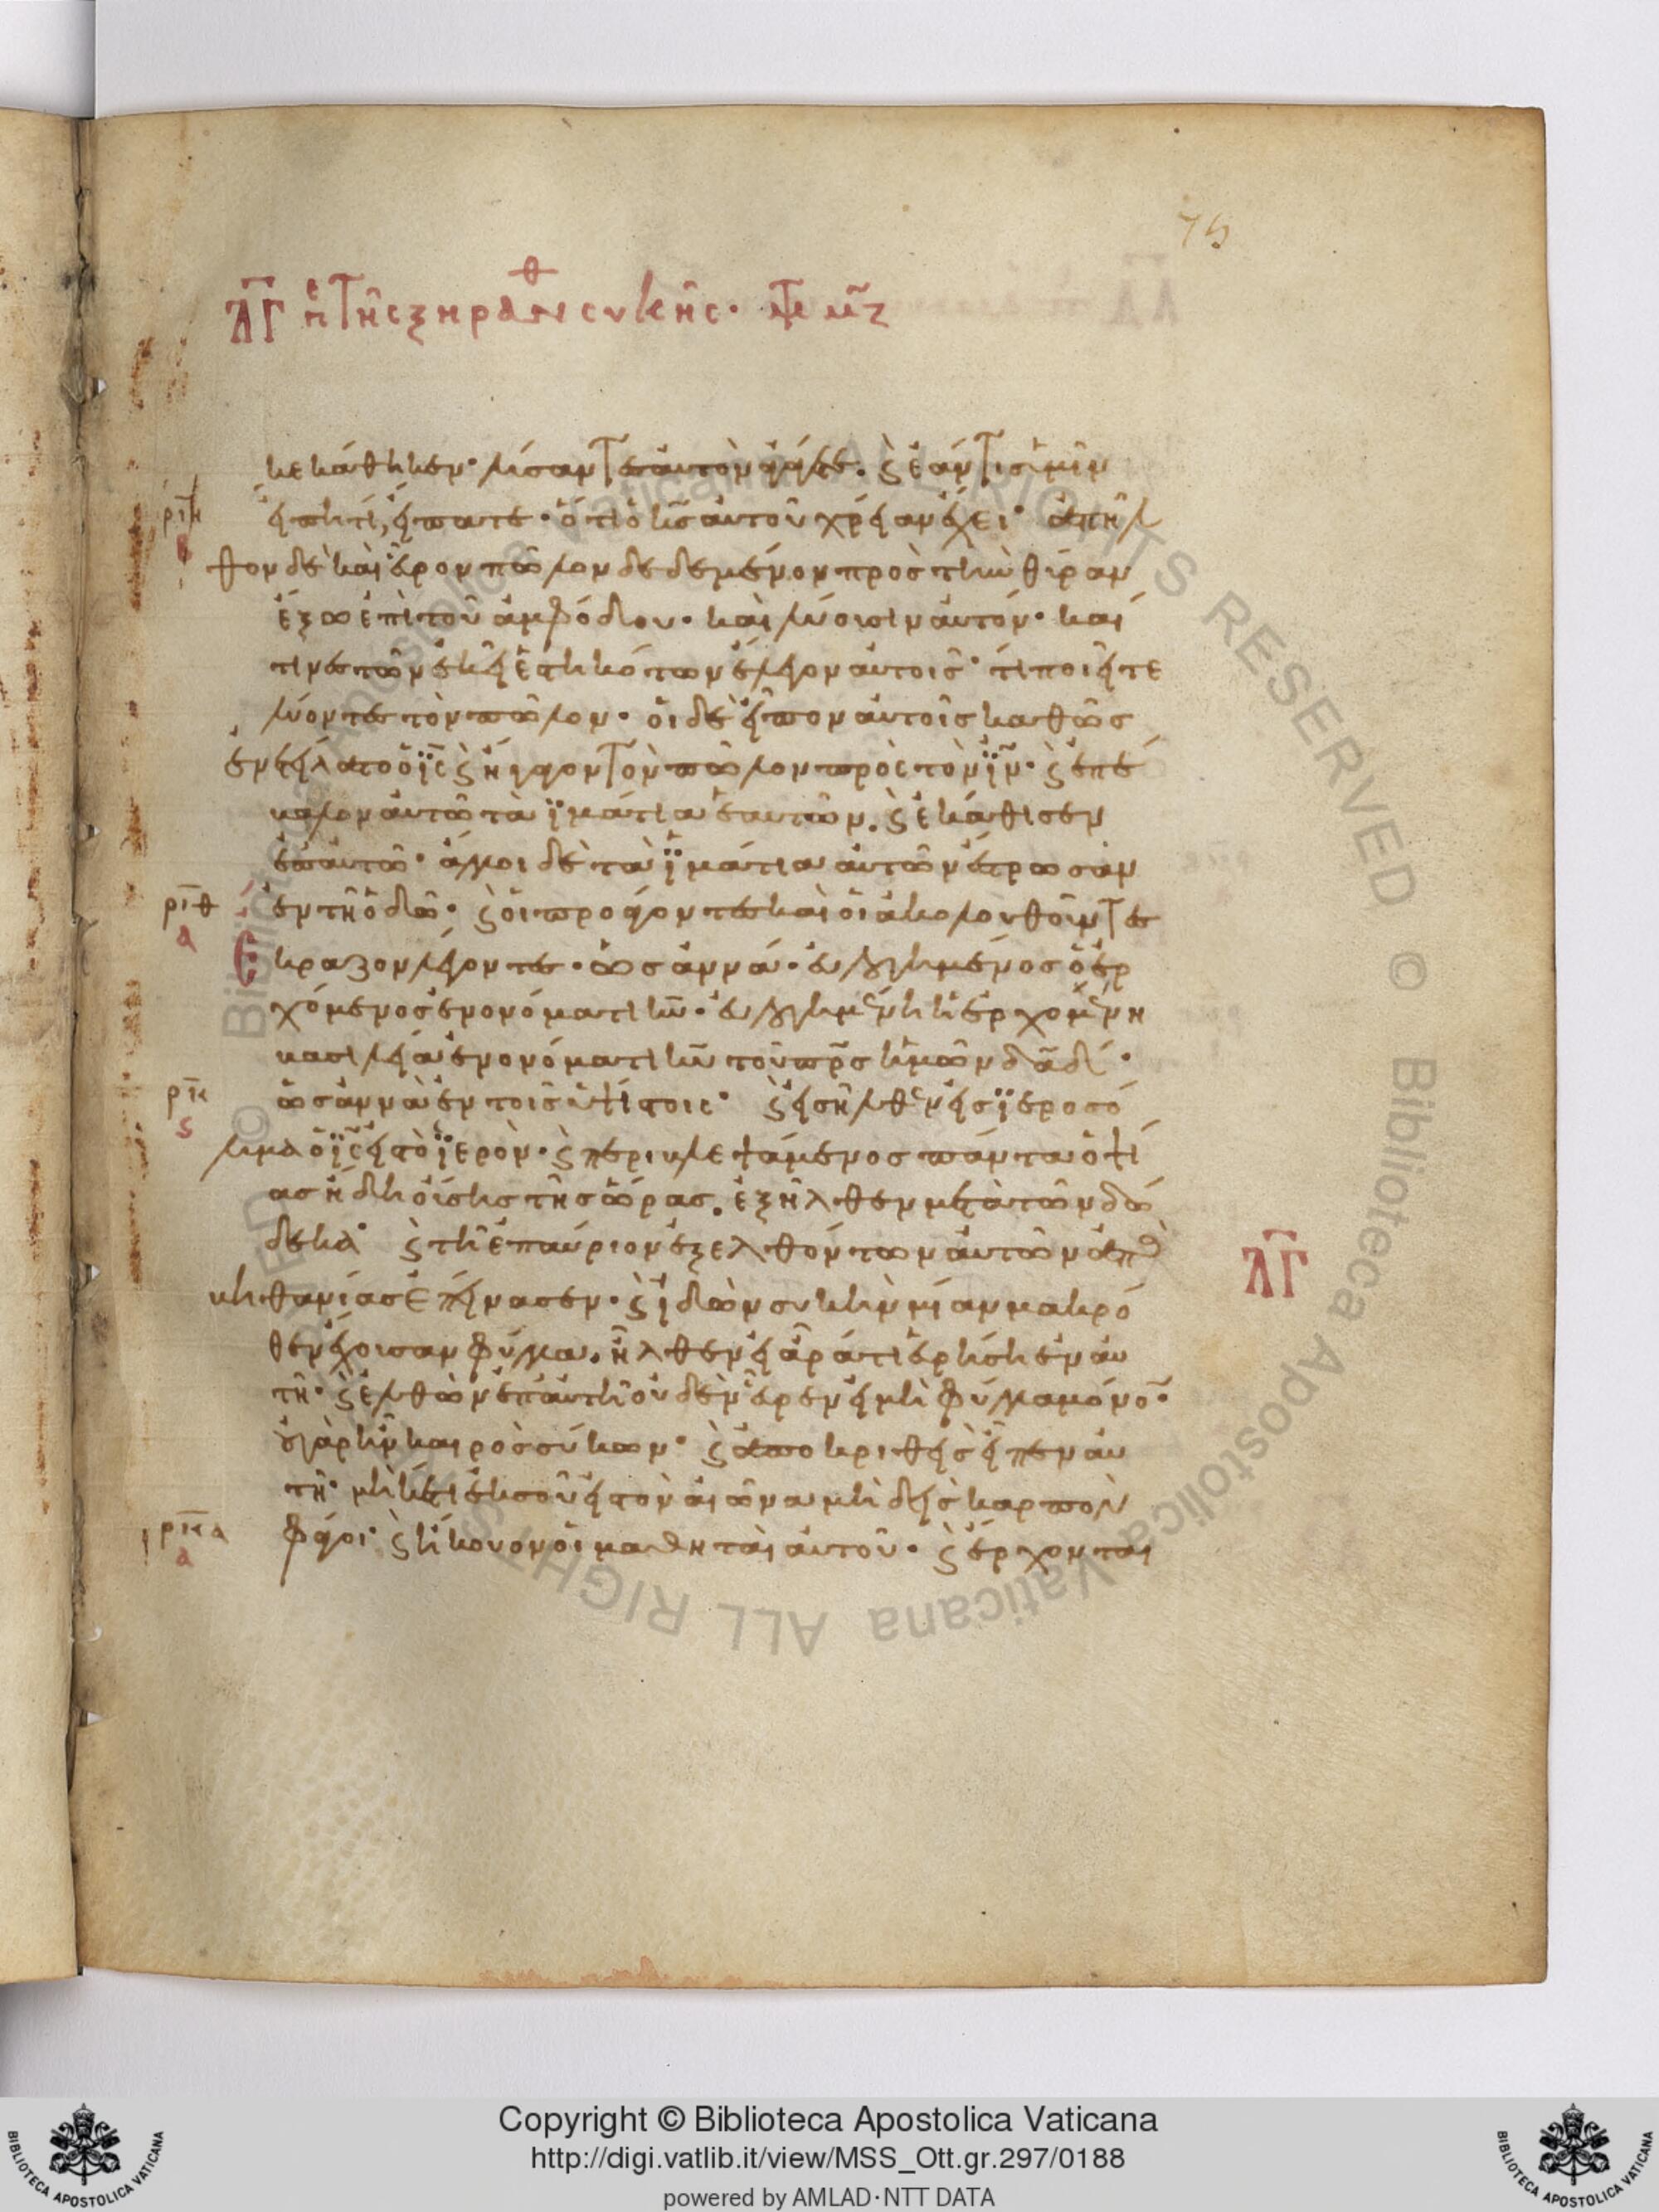 75
λγ π τῆς ξηρανθ συκῆς· 
κεκάθηκεν· λύσαντες αὐτὸν ἀγάγετε. ϗ ἐάν τισ ὑμῖν
ριη εἴπη τί, εἴπατε· ὅτι ὁ κ̅ς̅ αὐτοῦ χρείαν ἔχει· ἀπῆλ
θον δὲ καὶ εὗρον πῶλον δεδεμένον πρὸς τὴν θύραν
ἔξω ἐπὶ τοῦ ἀμφόδου· καὶ λύουσιν αὐτόν· καί
τινες τῶν ἐκεῖ ἑστηκότων ἔλεγον αὐτοῖς· τί ποιεῖτε
λύοντες τὸν πῶλον· οἱ δὲ εἶπον αὐτοῖς καθὼς
ἐνετείλατο ὁ ι̅ς̅ ϗ ἤγαγον τὸν πῶλον πρὸς τὸν ι̅ν̅· ϗ ἐπέ
βαλον αὐτῶ τὰ ϊμάτια ἑαυτῶν. ϗ ἐκάθισεν
ἐπ αὐτῶ· ἄλλοι δὲ τὰ ϊμάτια αὐτῶν ἔστρωσαν
ριθ ἐν τῆ ὁδῶ· ϗ οἱ προάγοντες καὶ οἱ ἀκολουθοῦντες
α Ἔκραζον λέγοντες· ὡσαννά· εὐλογημένος ὁ ἐρ
χόμενος ἐν ὀνόματι κ̅υ̅· εὐλογημένη ἡ ἐρχομένη
βασιλεία ἐν ὀνόματι κ̅υ̅ τοῦ π̅ρ̅ς̅ ἡμῶν δ̅α̅δ̅·
ρκ ὡσαννὰ ἐν τοῖς ὑψίστοις· ϗ εἰσῆλθεν εἰς ϊεροσό
λυμα ὁ ι̅ς̅ εἰς τὸ ϊερόν· ϗ περιβλεψάμενος πάντα ὀψί
ας ἤδη οὔσης τῆς ὥρας. ἐξῆλθεν μετὰ τῶν δώ
δεκα· ϗ τῆ ἐπαύριον ἐξελθόντων αὐτῶν ἀπὸ
λγ
βηθανίας ἐπείνασεν· ϗ ἰδὼν συκὴν μίαν μακρό
θεν ἔχουσαν φύλλα. ἦλθεν εἰ ἄρα τι εὑρήσει ἐν αὐ
τῆ· ϗ ἐλθὼν ἐπ αὐτὴν οὐδὲν εὗρεν εἰ μὴ φύλλα μόνον·
οὐ γὰρ ἦν καιρὸς σύκων· ϗ ἀποκριθεὶς εἶπεν αὐ
τῆ· μηκέτι ἐκ σοῦ εἰς τὸν αἰῶνα μηδεὶς καρπὸν
ρκα φάγοι· ϗ ἤκουον οἱ μαθηταὶ αὐτοῦ· ϗ ἔρχονται
α
Copyright © Biblioteca Apostolica Vaticana
http://digi.vatlib.it/view/MSS_Ott.gr.297/0188
powered by AMLAD·NTT DATA